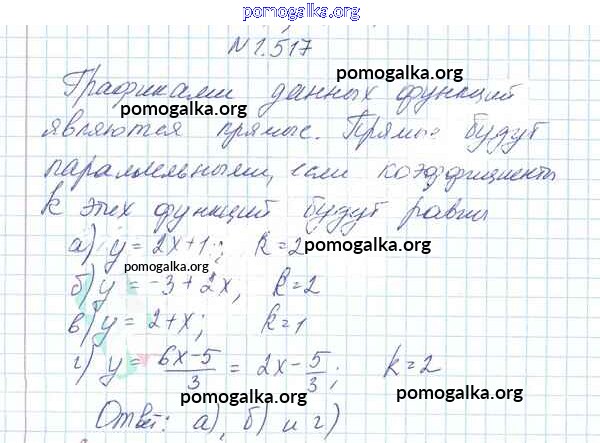 pomogalka.org
N 1.517
Графиками данных функций
pomogalka.org
pomogalka.org
являются прямые. Прямые будут
pomogalka.org
параллельными, если коэффициенты
pomogalka.org
k этих функций будут равны
а) y = 2x+1; k = 2
pomogalka.org
pomogalka.org
б) y = -3 + 2x, k = 2
в) y = 2 + x; k = 1
pomogalka.org
г) y = \frac{6x-5}{3} = 2x - \frac{5}{3}; k = 2
pomogalka.org
pomogalka.org
Ответ: а), б) и г)
pomogalka.org